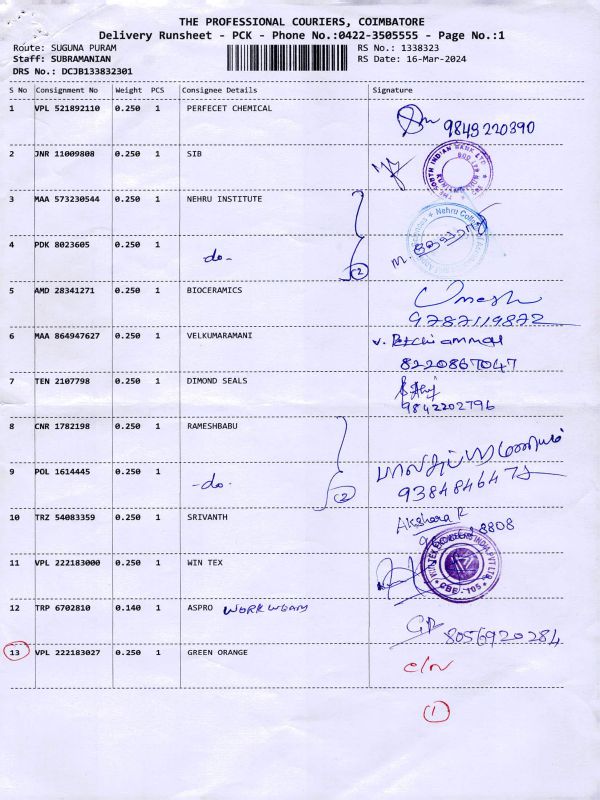 THE PROFESSIONAL COURIERS, COIMBATORE
Delivery Runsheet - PCK - Phone No.:0422-3505555 - Page No.:1
Route: SUGUNA PURAM
RS No.: 1338323
Staff: SUBRAMANIAN
RS Date: 16-Mar-2024
DRS No.: DCJB133832301
S No Consignment No Weight PCS Consignee Details Signature
1 VPL 521892110 0.250 1 PERFECET CHEMICAL 9843220390
2 JNR 11009808 0.250 1 SIB
THE SOUTH INDIAN BANK LTD
3 MAA 573230544 0.250 1 NEHRU INSTITUTE
Nehru College
4 PDK 8023605 0.250 1 -do- (2)
5 AMD 28341271 0.250 1 BIOCERAMICS Umesh
9787119872
6 MAA 864947627 0.250 1 VELKUMARAMANI v. Petchiammal
8220867047
7 TEN 2107798 0.250 1 DIMOND SEALS
9842202796
8 CNR 1782198 0.250 1 RAMESHBABU
9 POL 1614445 0.250 1 -do- (2)
10 TRZ 54083359 0.250 1 SRIVANTH Akshara R
8808
11 VPL 222183000 0.250 1 WIN TEX
CBE-
12 TRP 6702810 0.140 1 ASPRO
8056920284
13 VPL 222183027 0.250 1 GREEN ORANGE
1